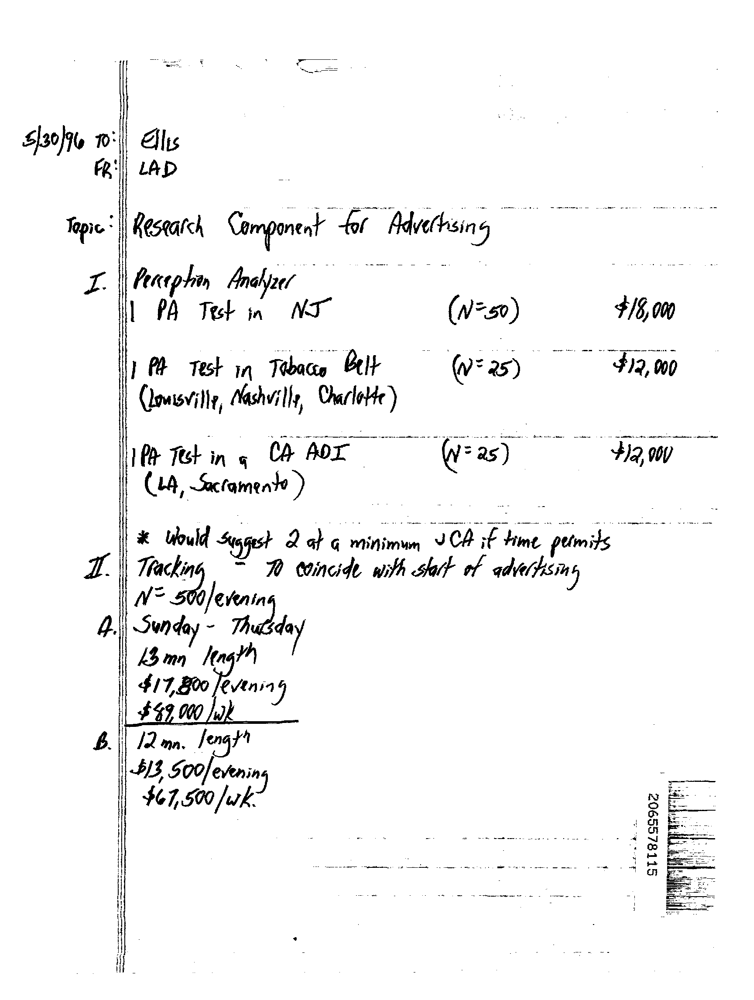 5/30/96 TO: Ellis
FR: LAD
Topic: Research Component for Advertising
I. Perception Analyzer
1 PA Test in NJ (N=50) $18,000
1 PA Test in Tobacco Belt (N=25) $12,000
(Louisville, Nashville, Charlotte)
1 PA Test in a CA ADI (N=25) $12,000
(LA, Sacramento)
* Would suggest 2 at a minimum CA if time permits
II. Tracking - To coincide with start of advertising
N= 500/evening
A. Sunday - Thursday
mn length
$17,800/evening
$89,000/wk
B. 12 mn. length
$13,500/evening
$67,500/wk.
2065578115